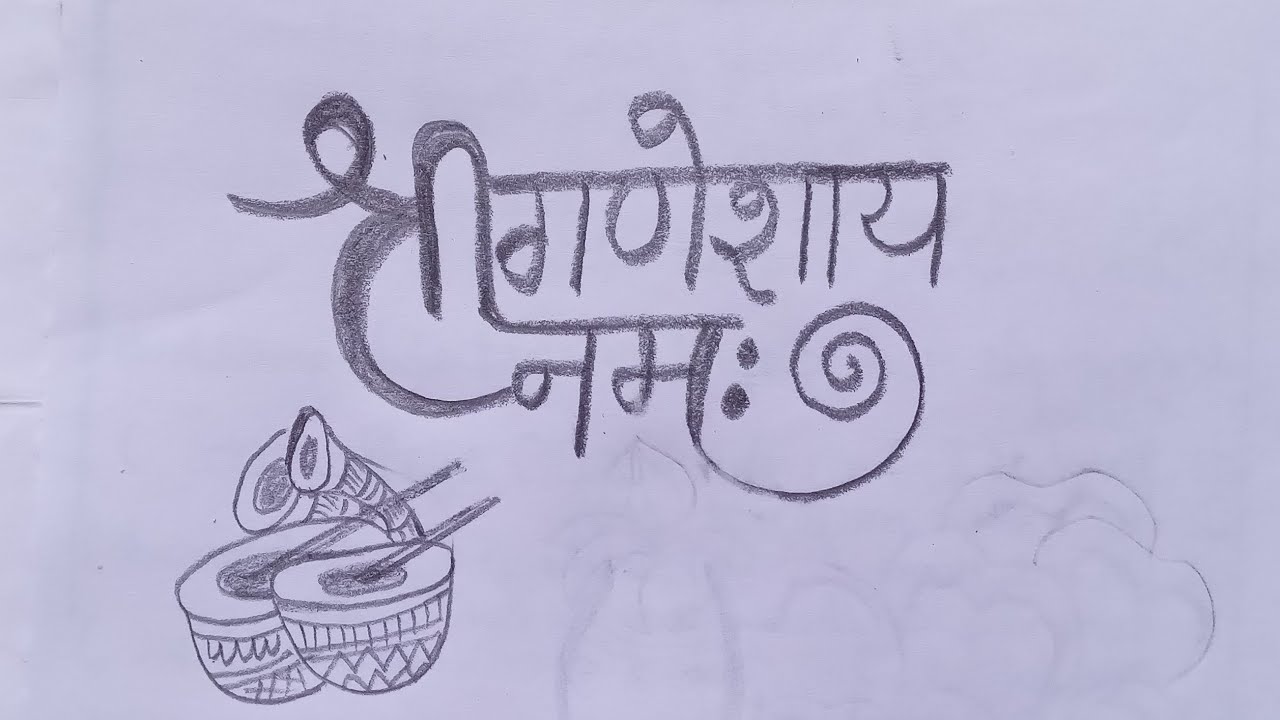 श्री गणेशाय
नमः